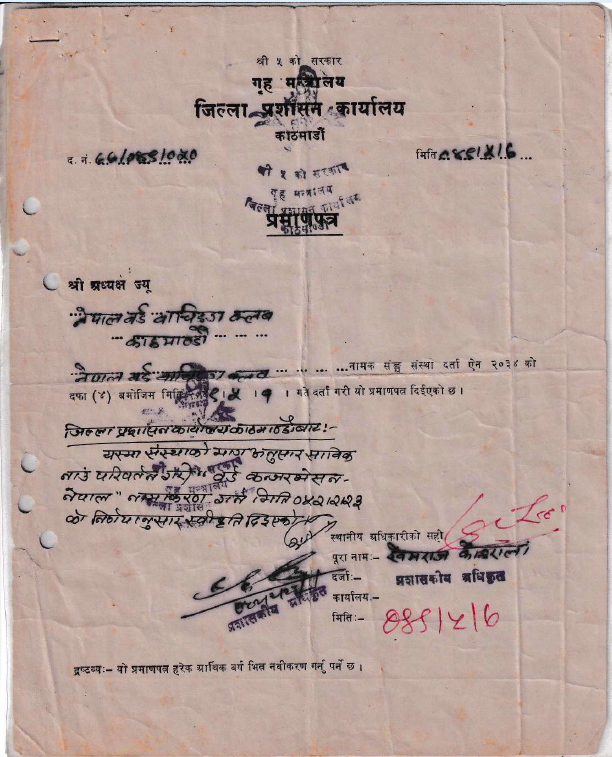 श्री ५ को सरकार
गृह मन्त्रालय
जिल्ला प्रशासन कार्यालय
काठमाडौं
द. नं. मिति
श्री ५ को सरकार
गृह मन्त्रालय
जिल्ला प्रशासन कार्यालय
काठमाडौं
प्रमाणपत्र
श्री अध्यक्ष ज्यू
नेपाल वर्ड वाचिङ्ग क्लव
काठमाण्डौ
नेपाल वर्ड वाचिङ्ग क्लव नामक सङ्घ संस्था दर्ता ऐन २०३४ को
दफा (४) बमोजिम मिति गते दर्ता गरी यो प्रमाणपत्र दिईएको छ ।
जिल्ला प्रशासन कार्यालय काठमाण्डौबाट :-
यस्मा संस्थाको माग अनुसार साविक
नाउं परिवर्तन गरी "वर्ड कन्जरभेसन
नेपाल" नामाकरण गर्न मिति
को निर्णयानुसार स्वीकृति दिईएको
स्थानीय अधिकारीको सही
पूरा नाम:- खेमराज कोइराला
दर्जा:- प्रशासकीय अधिकृत
कार्यालय:-
प्रशासकीय अधिकृत
मिति:-
द्रष्टव्य:- यो प्रमाणपत्र हरेक आर्थिक बर्ष भित्र नवीकरण गर्नु पर्ने छ ।